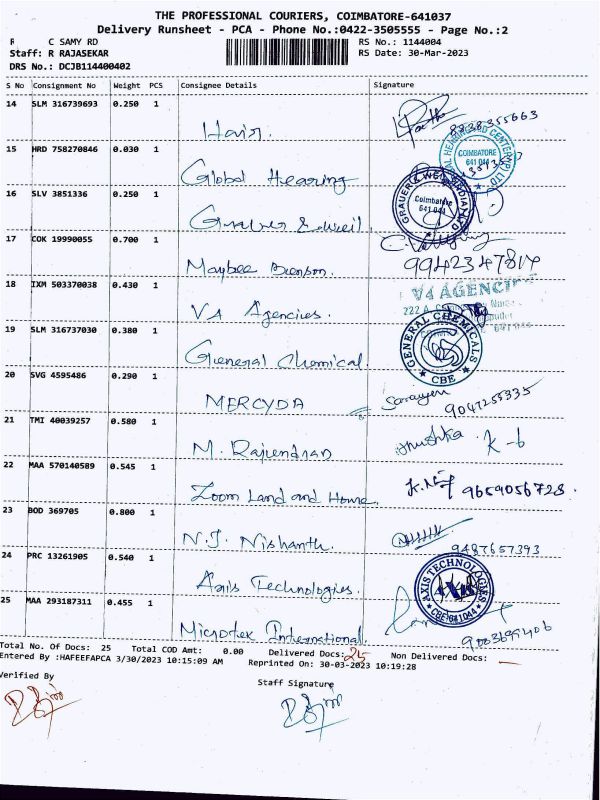 THE PROFESSIONAL COURIERS, COIMBATORE-641037
Delivery Runsheet - PCA - Phone No.:0422-3505555 - Page No.:2
R C SAMY RD RS No.: 1144004
Staff: R RAJASEKAR RS Date: 30-Mar-2023
DRS No.: DCJB114400402
S No Consignment No Weight PCS Consignee Details Signature
14 SLM 316739693 0.250 1
8338355663
15 HRD 758270846 0.030 1
Global Hearing
COIMBATORE
16 SLV 3851336 0.250 1
Grauer & Weil
Coimbatore
641 044
17 COK 19990055 0.700 1
Maybee Benson.
9942347814
18 IXM 503370038 0.430 1
V4 Agencies.
V4 AGENCIES
19 SLM 316737030 0.380 1
General Chemical
GENERAL CHEMICALS
CBE
20 SVG 4595486 0.290 1
MERCYDA
9047255335
21 TMI 40039257 0.580 1
M. Rajendran
Anushka. K-6
22 MAA 570140589 0.545 1
Zoom Land and Home.
9659056728.
23 BOD 369705 0.800 1
N.J. Nishanth.
9487657393
24 PRC 13261905 0.540 1
Axis Technologies.
AXIS TECHNOLOGIES
AXIS
CBE-641044
25 MAA 293187311 0.455 1
Microtex International.
9003699406
Total No. Of Docs: 25 Total COD Amt: 0.00 Delivered Docs: 25 Non Delivered Docs: —
Entered By :HAFEEFAPCA 3/30/2023 10:15:09 AM Reprinted On: 30-03-2023 10:19:28
Verified By Staff Signature